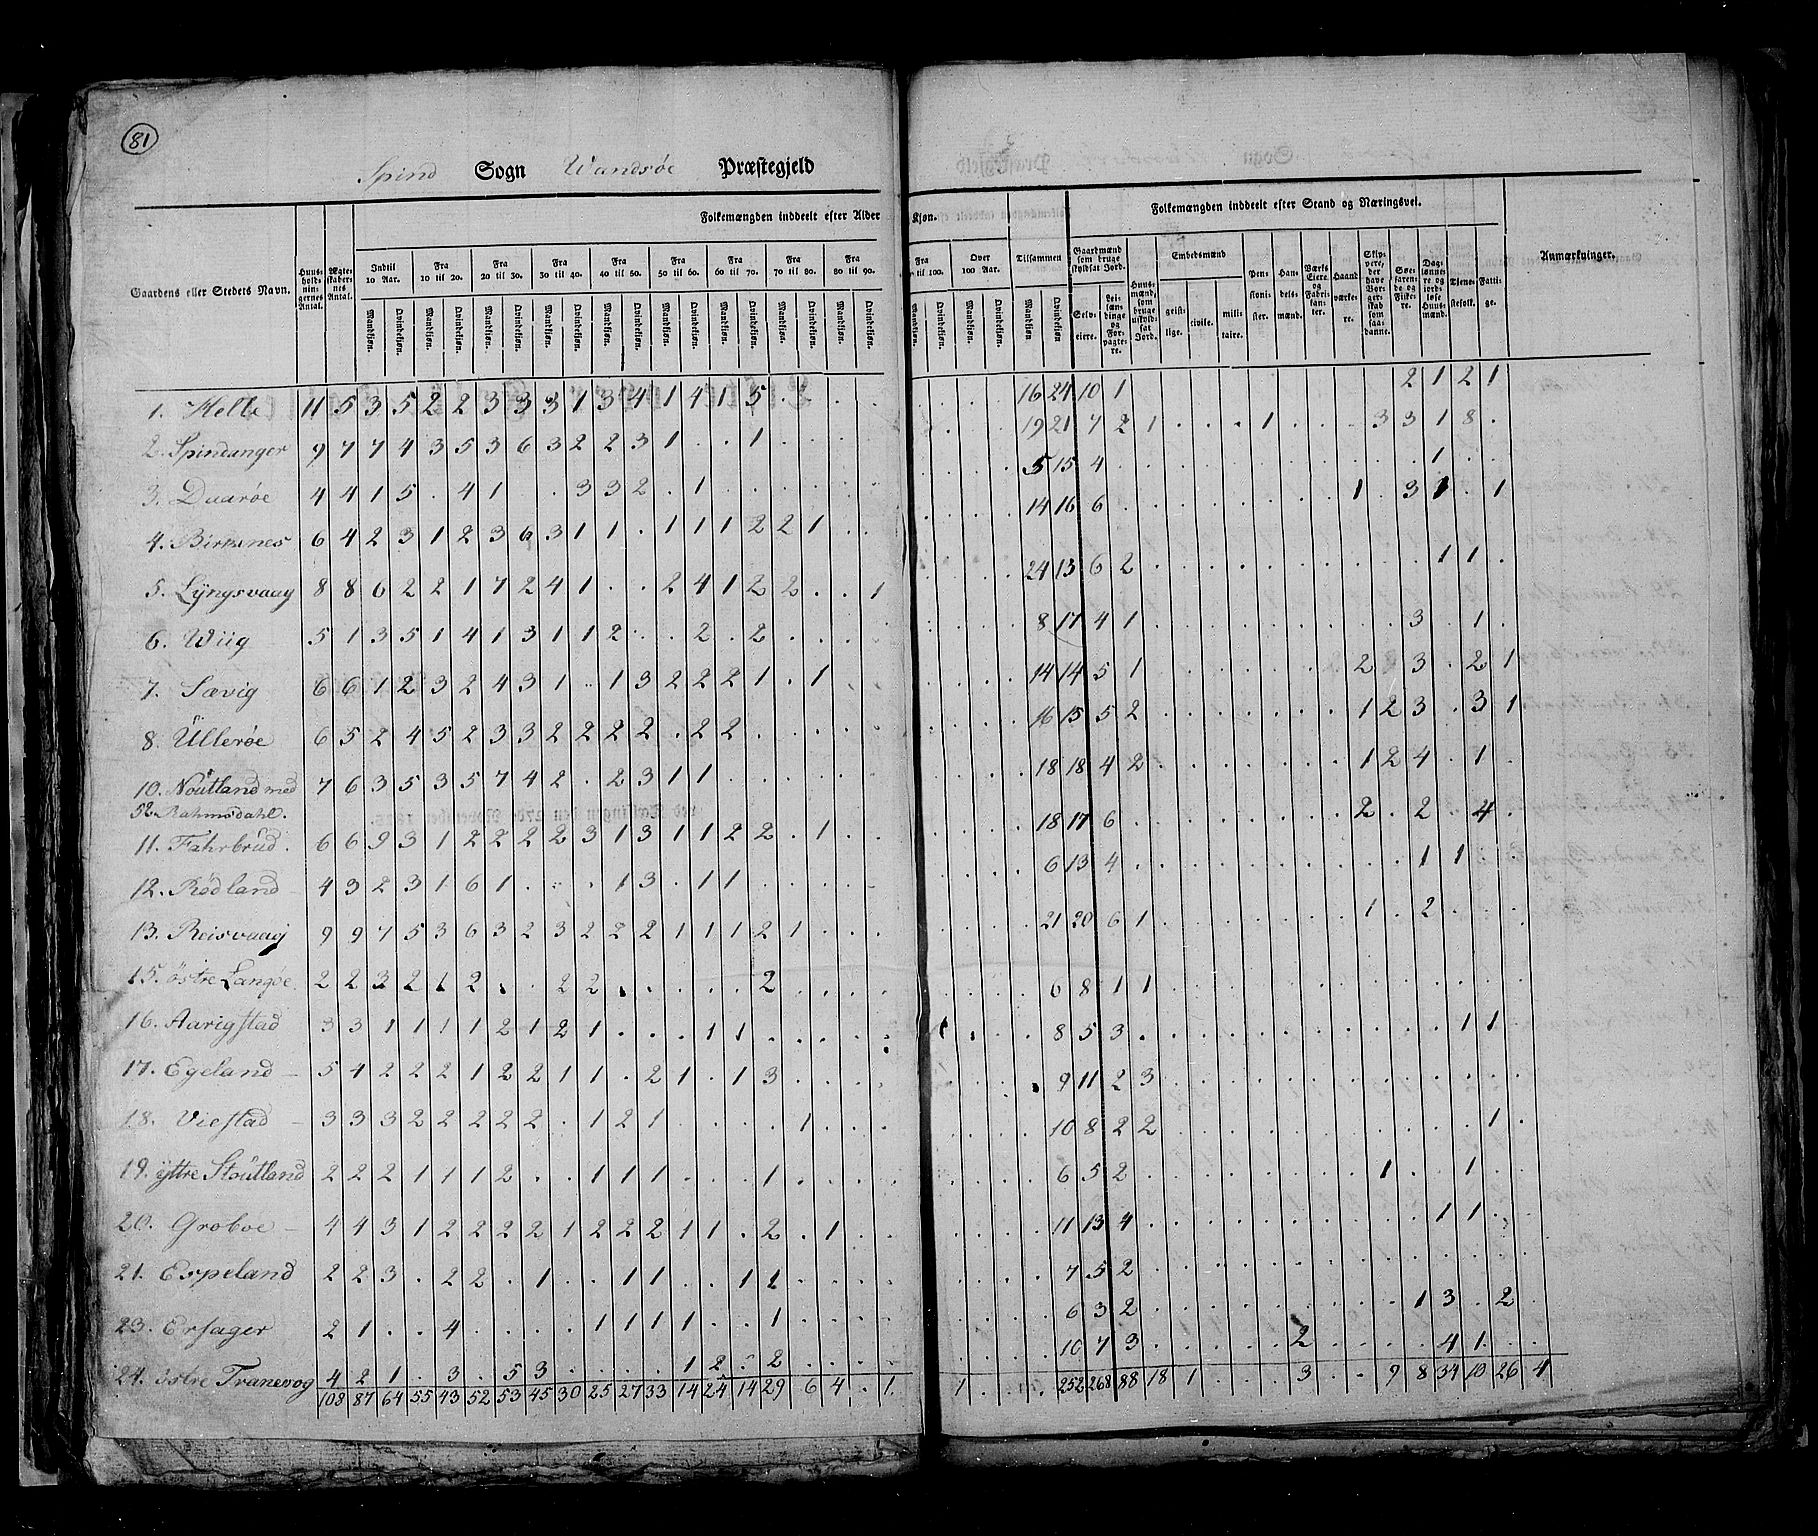 81
Spind Sogn Wandsøe Præstegjeld
Folkemængden inddeelt efter Alder
Kjøn.
Folkemængden inddeelt efter Stand og Næringsvei.
Gaardens eller Stedets Navn.
Huus-
hold-
nin-
gernes
Antal.
Ægte-
skaber-
nes
Antal.
Indtil
10 Aar.
Fra
10 til 20.
Fra
20 til 30.
Fra
30 til 40.
Fra
40 til 50.
Fra
50 til 60.
Fra
60 til 70.
Fra
70 til 80.
Fra
80 til 90.
Fra
til 100.
Over
100 Aar.
Tilsammen
Mandkjøn. Qvindekjøn. Mandkjøn. Qvindekjøn. Mandkjøn. Qvindekjøn. Mandkjøn. Qvindekjøn. Mandkjøn. Qvindekjøn. Mandkjøn. Qvindekjøn. Mandkjøn. Qvindekjøn. Mandkjøn. Qvindekjøn. Mandkjøn. Qvindekjøn. Mandkjøn. Qvindekjøn. Mandkjøn. Qvindekjøn. Mandkjøn Qvindekjøn.
Gaardmænd
som bruge
skyldsat Jord.
Selv-
eiere.
Lei-
længinge
og
For-
pagte-
re.
Huus-
mænd,
som
bruge
uskyld-
sat
Jord.
Embedsmænd
geist-
lige.
civile.
mili-
taire.
Pen-
sioni-
ster.
Han-
dels-
mænd.
Værks
Eiere
og
Fabri-
kan-
ter.
Haand
værke-
re.
Skip-
pere,
der
have
Bor-
ger-
skab
som
saa-
danne.
Søe-
faren-
de og
Fiske-
re.
Dag-
lønne-
re og
jord-
løse
Huus-
mænd.
Tjene-
stefolk.
Fatti-
ge.
Anmærkninger.
1. Helle 11 5 3 5 2 2 3 3 3 1 3 4 1 4 1 5 . . . . 16 24 10 1 2 1 2 1
2. Spindanger 9 7 7 4 3 5 3 6 3 2 2 3 1 . . 1 . . . 19 21 7 2 1 . . . 1 . . . 3 3 1 8 .
3. Daarøe 4 4 1 5 . 4 1 . . 3 3 2 . 1 . . . 5 15 4 . . . 1 .
4. Birkenes 6 4 2 3 1 2 3 6 3 1 1 . 1 1 1 2 2 1 . . 14 16 6 . . . 1 . 3 1 . 1
5. Lÿngsvaag 8 8 6 2 2 1 7 2 4 1 . . 2 4 1 2 2 . . 1 24 13 6 2 . . . 1 1 .
6. Wiig 5 1 3 5 1 4 1 3 1 1 2 . . 2 . 2 . . . . 8 17 4 1 . . . 3 . 1 .
7. Sævig 6 6 1 2 3 2 4 3 1 . 1 3 2 2 2 1 . 1 . . 14 14 5 1 . . . 2 . 3 . 2 1
8. Ullerøe 6 5 2 4 5 2 3 3 2 2 2 2 . 2 2 . . . . 16 15 5 2 . . . 1 2 3 . 3 1
10. Noutland med
52. Rahmsdahl. 7 6 3 5 3 5 7 4 2 . 2 3 1 1 . . . . 18 18 4 2 . . . 1 2 4 . 1 .
11. Fahrbrud. 6 6 9 3 1 2 2 2 2 3 1 3 1 1 2 2 . 1 . . 18 17 6 . . . 2 . 2 . 4 .
12. Rødland 4 3 2 3 1 6 1 . . . 1 3 . 1 1 . . . . 6 13 4 . . . 1 1 . .
13. Reisvaag 9 9 7 5 3 6 3 2 3 2 2 2 1 1 1 2 1 . . . 21 20 6 1 . . . 1 . 2 . . .
15. østre Langøe. 2 2 3 2 1 2 . . 2 2 . . . . . 2 . . . . 6 8 1 1 . . .
16. Aarigstad 3 3 1 1 1 1 2 1 2 1 . . . 1 1 . . . . . 8 5 3 . . . 1 1 .
17. Egeland 5 4 2 2 2 1 2 2 1 1 . 2 1 . 1 3 . . . . 9 11 2 3 . . .
18. Viestad 3 3 3 2 2 2 2 2 . 1 2 1 . . . . 1 . . . 10 8 2 2 . . . 1 .
19. ÿttre Stoutland 2 2 2 1 1 1 2 . . 1 1 1 . . . 1 . . . . 6 5 2 . . . 1 . . 1 . .
20. Groboe 4 4 3 1 2 2 2 2 1 2 2 2 1 1 . 2 . 1 . . 11 13 4 . . . 1 1 . .
21. Espeland 2 2 3 . 2 2 . 1 . . 1 1 . . 1 1 . . . . 7 5 2 . . .
23. Ersager 2 1 . . 4 . . . . 1 1 1 1 . . 1 . . . . 6 3 2 . . . 1 3 . 2 .
24. østre Tranevog 4 2 1 . 3 . 5 3 . . . . 1 2 . 2 . . . . 10 7 3 . . . 2 . . . 4 1 . .
108 87 64 55 43 52 53 45 30 25 27 33 14 24 14 29 6 4 . 1 1 . . . 252 268 88 18 1 . . . 3 . . 9 8 34 10 26 4